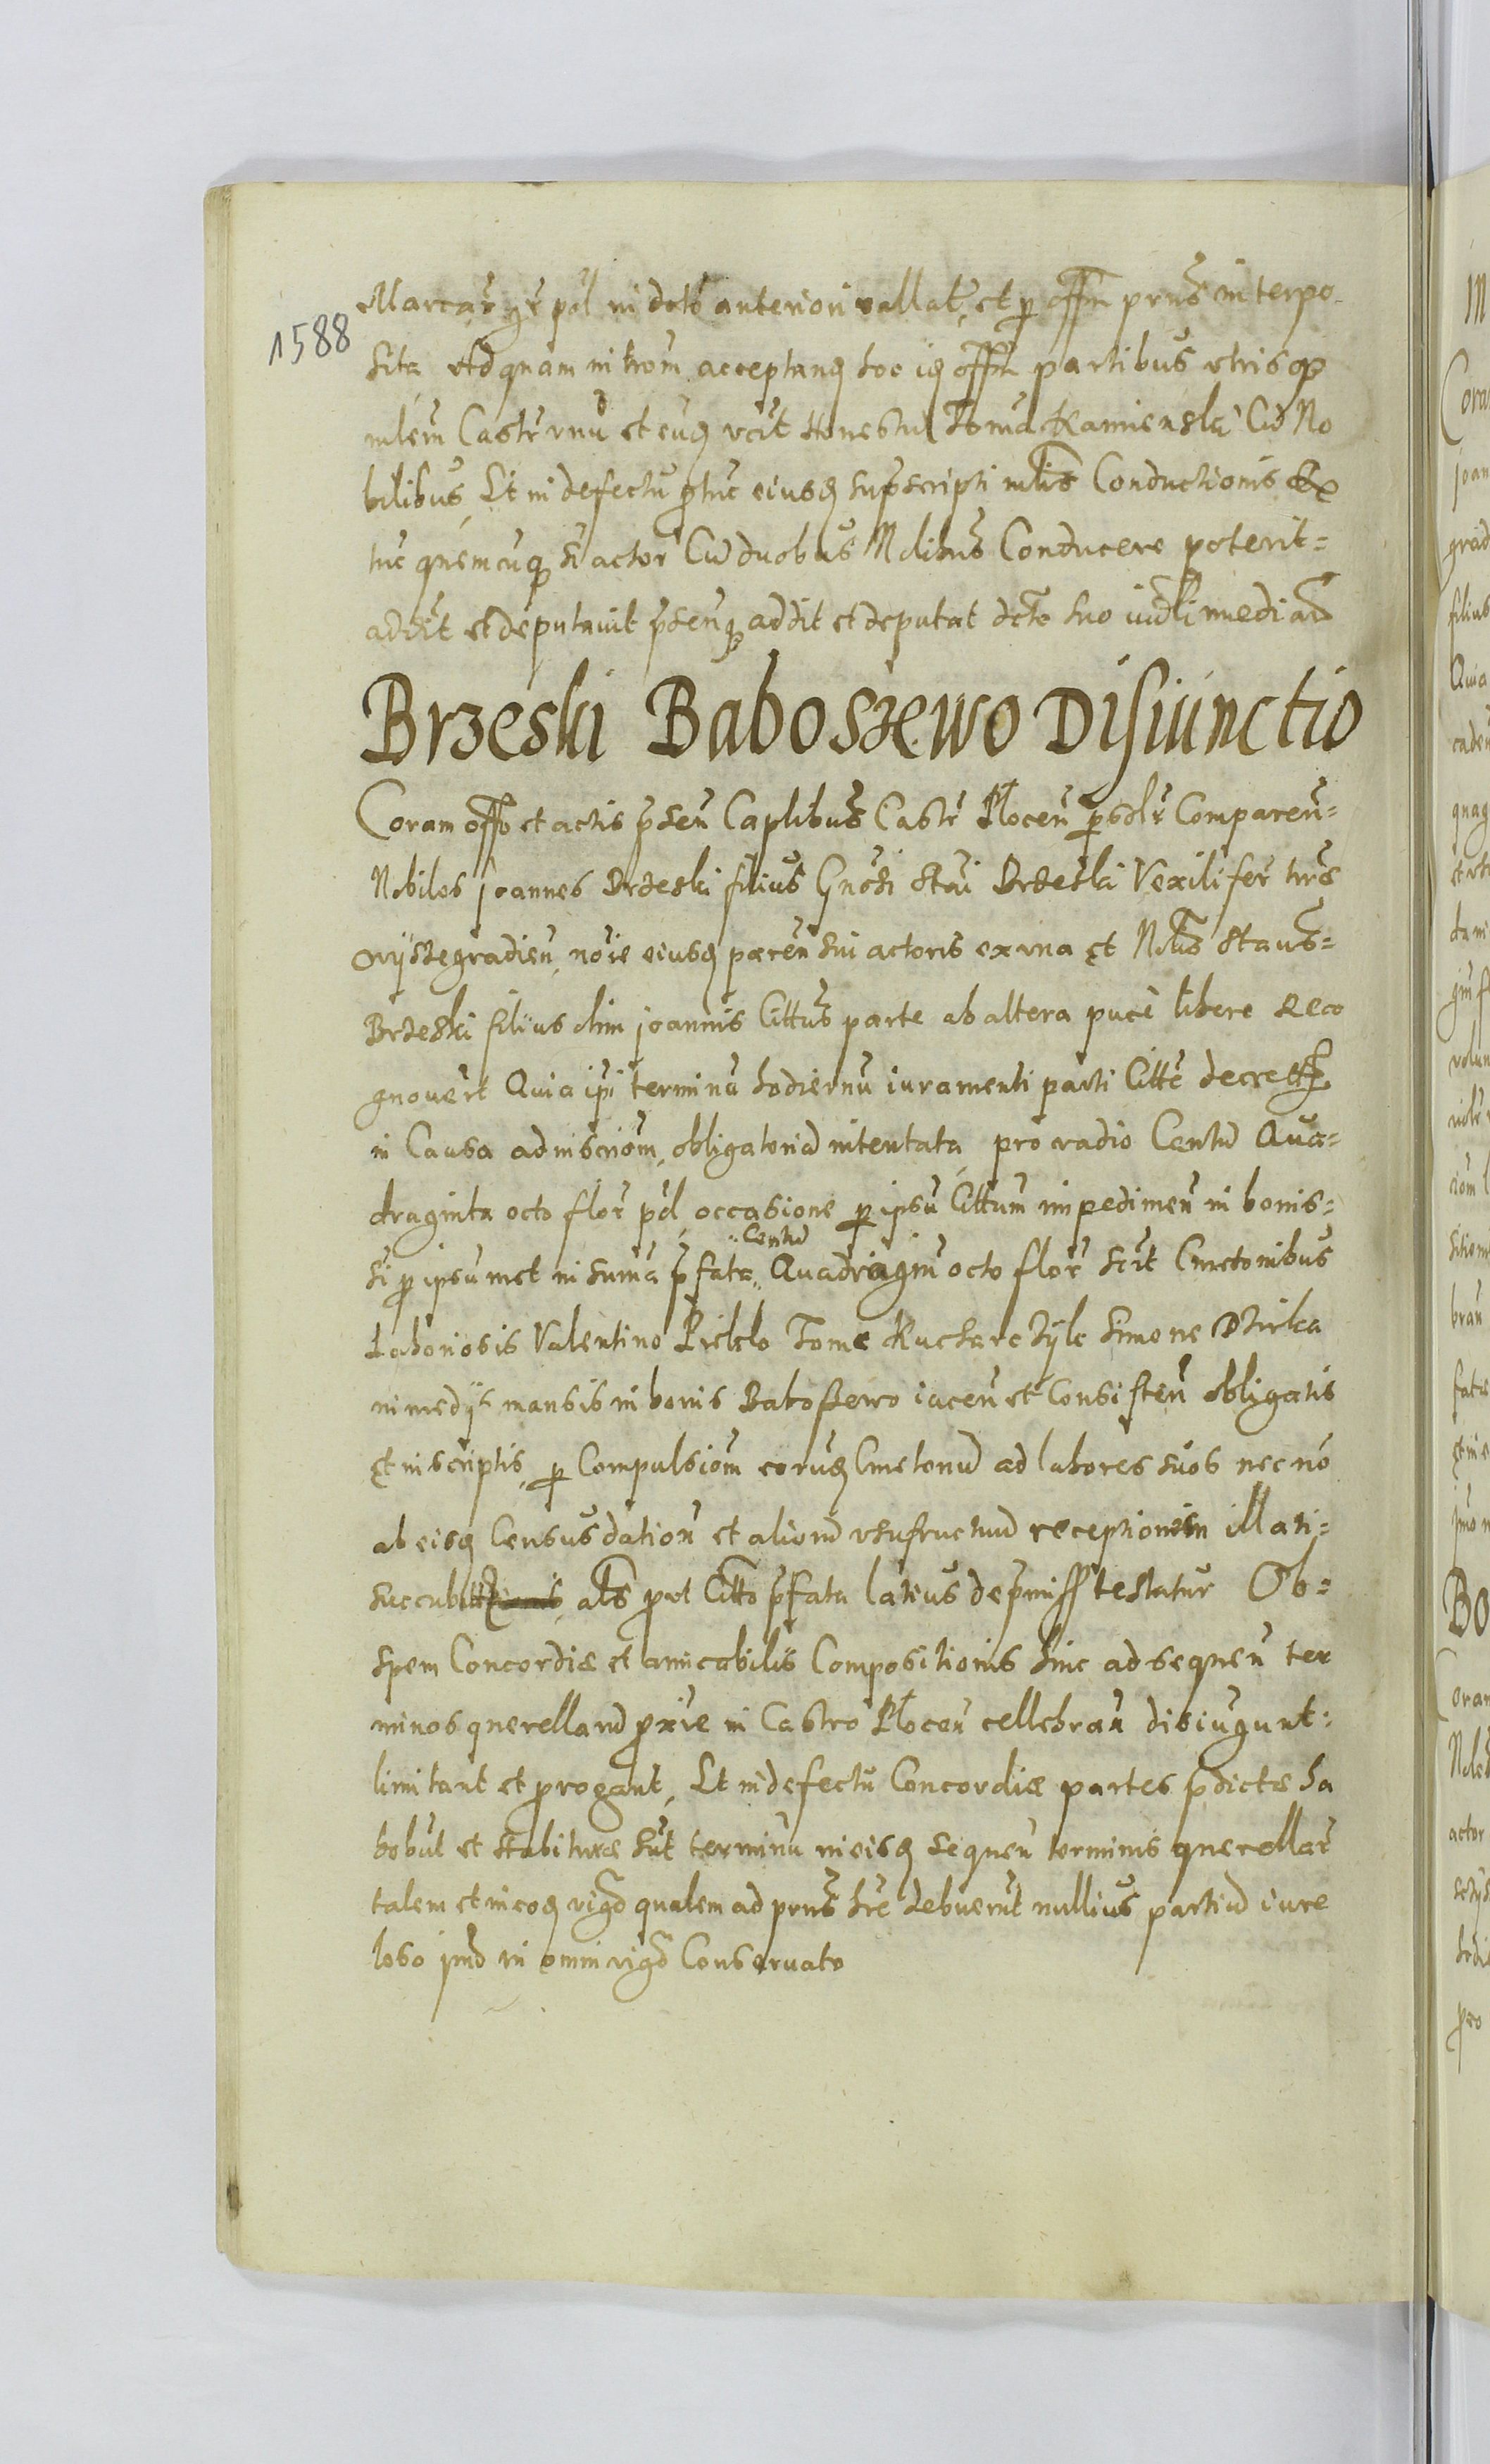 1588
Marcar pol in dcto anteriori vallat, et p offm prius interpo-
sita Ad quam introm acceptand hoc id offm partibus utrisq
mlem Castr unu et eund scit Honestu Toma Kamienski Cu No
bilibus, Et in defectu ptuc eiusd supscripti mlis Conductionis Ex
tuc quemcuq si actor Cu duobus Nlibus Conducere poterit=
addit et deputavit psenq addit et deputat dcto suo iudli median
Brzeski Baboszewo Disiunctio
Coram offo et actis psen Caplibus Castr Plocen psolr Comparen=
Nobiles Joannes Brzeski filius Gnosi Stai Brzeski Vexilifer trris
Wyszegradien, noie eiusd paren sui actoris ex una et Nlis Staus=
Brzeski filius olim joannis Cittus parte ab altera puce libere Reco
gnovert Quia ipi terminu hodiernu iuramenti parti Citte decrett
in Causa ad inscriom obligatoria intentata, pro vadio Centu Qua=
draginta octo flor pol, occasione p ipsu Cittum impedimen in bonis=
si p ipsumet in suma pfata „ Centu Quadragin octo flor scit Cmetonibus
Laboriosis Valentino Pielclo Tome Kucharczyk Simone Dzirka
in medys mansis in bonis Baboszewo iacen et Consisten obligatis
et inscriptis, p Compulsiom eorund Cmetonu ad labores suos necno
ab eisd Census dation et aliom usufructuu receptionem illati=
succubitt als put Citto pfata latius de pmiss testatur Ob=
spem Concordiæ et amicabilis Compositionis hinc ad sequen ter
minos querellaru pxie in Castro Plocen cellebran disiugunt=
limitant et progant, Et in defectu Concordiæ partes pdictæ ha
bebut et stabituræ sut terminu in eisd sequen terminis querellar
talem et in eod vigo qualem ad prius hre debuerut nullius partiu iure
leso imo in omni vigo Conservato